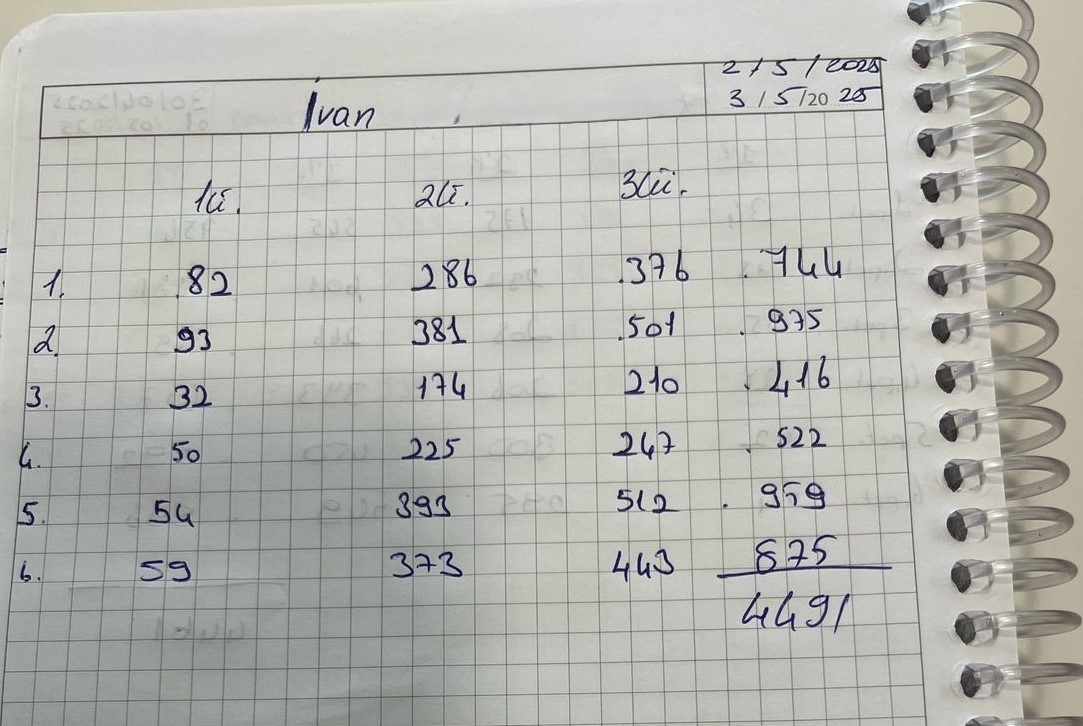 2/5/2025
Ivan 3/5/2025
1či. 2či. 3či.
1. 82 286 .376 .744
2. 93 381 .501 .975
3. 32 174 210 .416
4. 50 225 247 .522
5. 54 393 512 .959
6. 59 373 443 875
4491